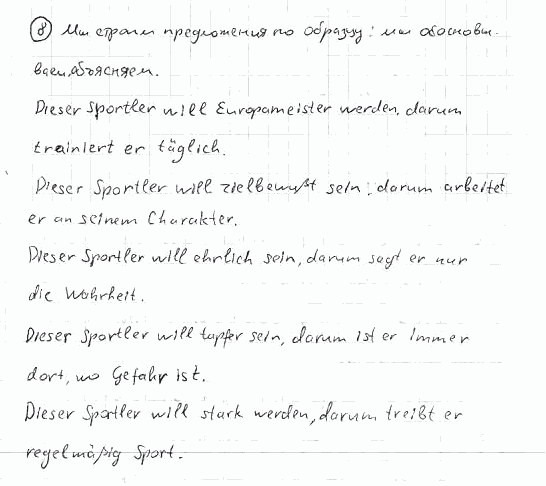 ⑧ Мы строим предложения по образцу: мы обосновы-
ваем, объясняем.
Dieser Sportler will Europameister werden, darum
trainiert er täglich.
Dieser Sportler will zielbewußt sein, darum arbeitet
er an seinem Charakter.
Dieser Sportler will ehrlich sein, darum sagt er nur
die Wahrheit.
Dieser Sportler will tapfer sein, darum ist er immer
dort, wo Gefahr ist.
Dieser Sportler will stark werden, darum treißt er
regelmäßig Sport.